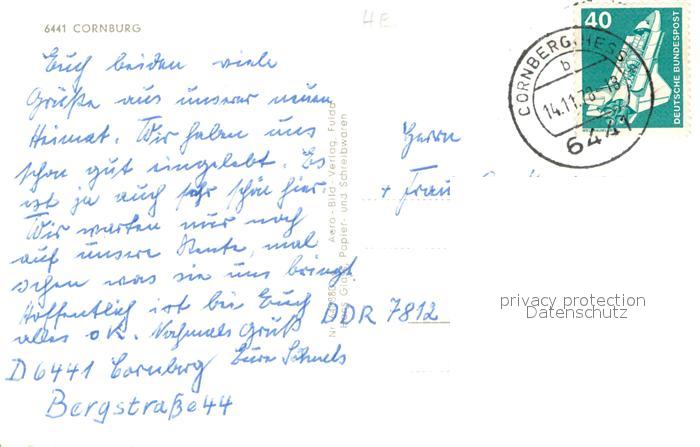 6441 CORNBURG
4E
Euch beiden viele
Grüße aus unserer neuen
Heimat. Wir haben uns
schon gut eingelebt. Es
ist ja auch sehr schön hier.
Wir warten nur noch
auf unsere Rente, mal
sehen was sie uns bringt
Hoffentlich ist bei Euch
alles ok. Nochmals Gruß
Eure
D 6441 Cornberg
Bergstraße 44
Aero-Bild-Verlag, Fulda
Papier- und Schreibwaren
Herrn
+ Frau
DDR 7812
40
DEUTSCHE BUNDESPOST
CORNBERG, HESS
b
14.11.78-18
6441
privacy protection
Datenschutz